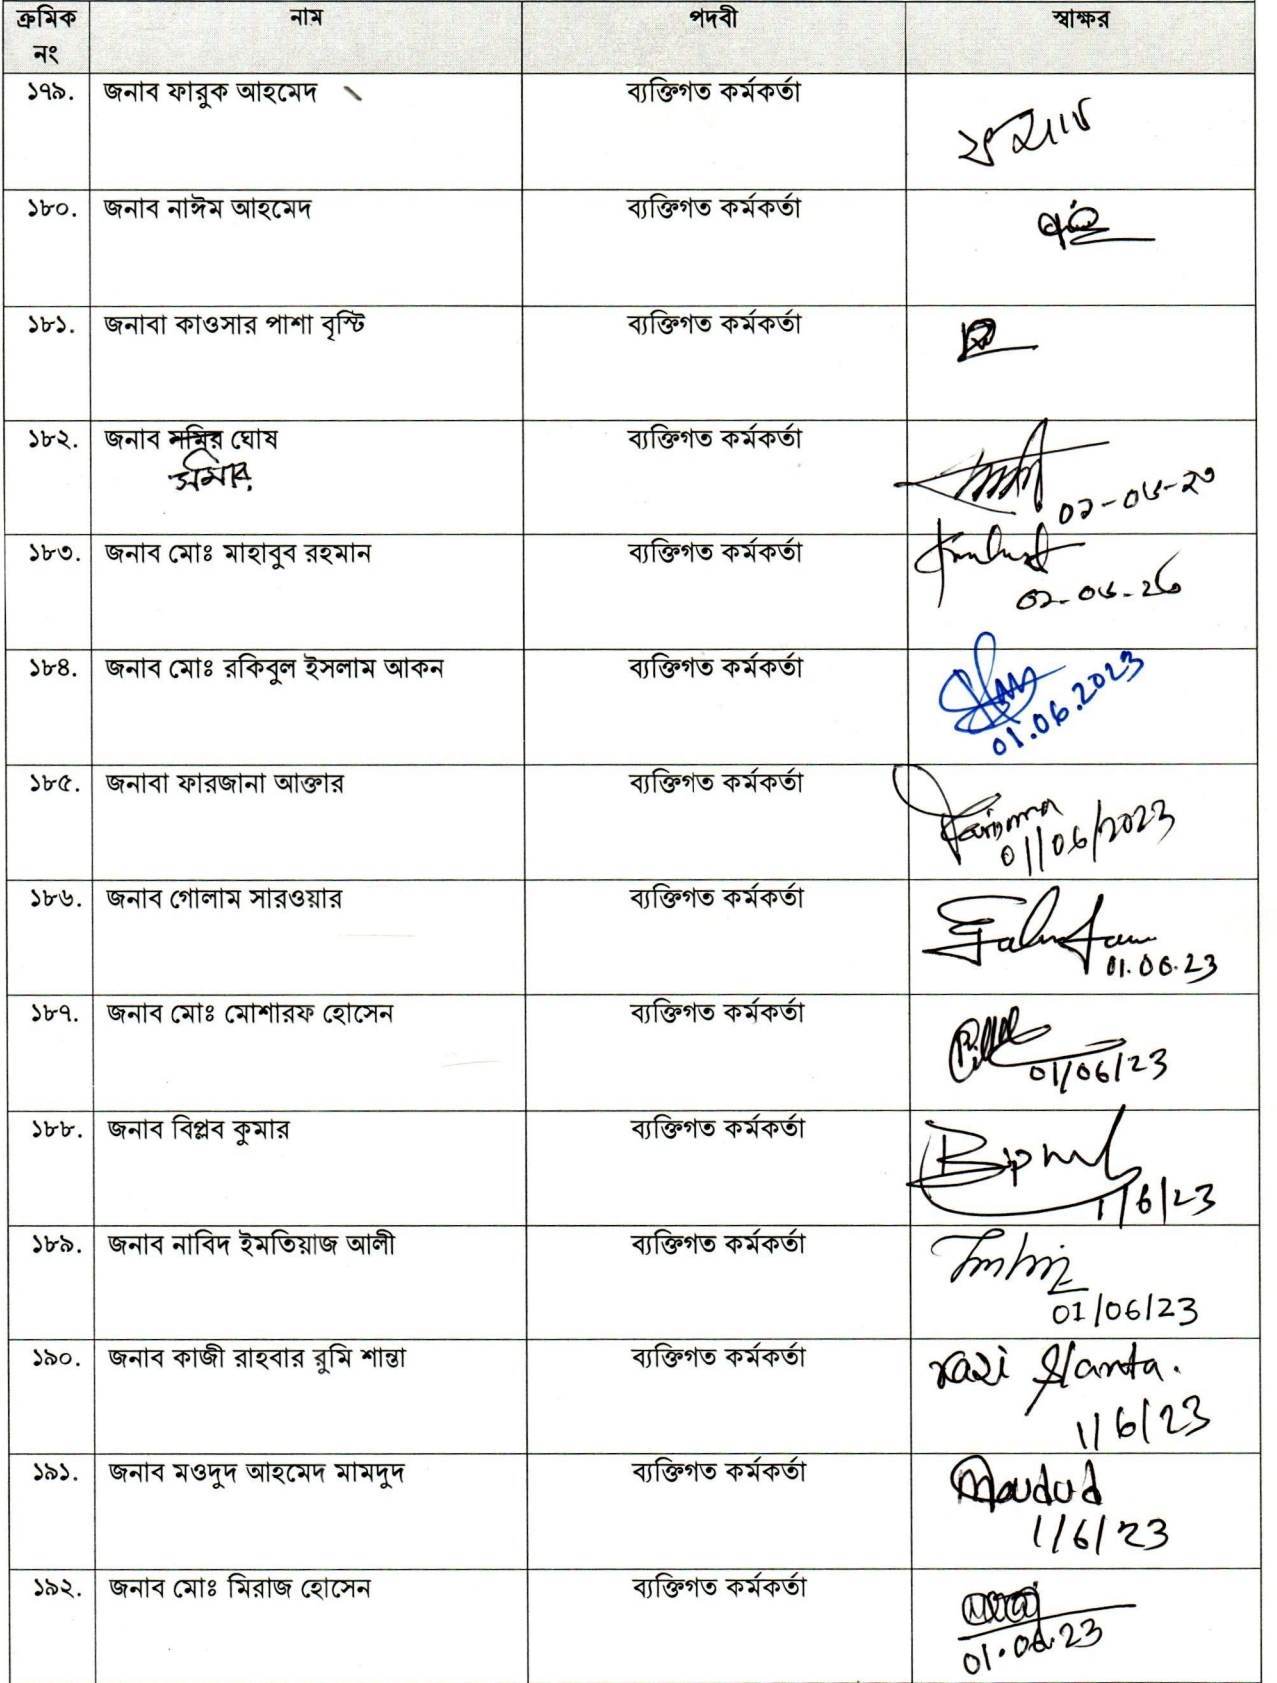 ক্রমিক নং নাম পদবী স্বাক্ষর
১৭৯. জনাব ফারুক আহমেদ ব্যক্তিগত কর্মকর্তা
১৮০. জনাব নাঈম আহমেদ ব্যক্তিগত কর্মকর্তা
১৮১. জনাবা কাওসার পাশা বৃস্টি ব্যক্তিগত কর্মকর্তা
১৮২. জনাব সমির ঘোষ ব্যক্তিগত কর্মকর্তা
সমীর
০২-০৬-২৩
১৮৩. জনাব মোঃ মাহাবুব রহমান ব্যক্তিগত কর্মকর্তা
০২-০৬-২৩
১৮৪. জনাব মোঃ রকিবুল ইসলাম আকন ব্যক্তিগত কর্মকর্তা
01.06.2023
১৮৫. জনাবা ফারজানা আক্তার ব্যক্তিগত কর্মকর্তা
01/06/2023
১৮৬. জনাব গোলাম সারওয়ার ব্যক্তিগত কর্মকর্তা
01.06.23
১৮৭. জনাব মোঃ মোশারফ হোসেন ব্যক্তিগত কর্মকর্তা
01/06/23
১৮৮. জনাব বিপ্লব কুমার ব্যক্তিগত কর্মকর্তা
1/6/23
১৮৯. জনাব নাবিদ ইমতিয়াজ আলী ব্যক্তিগত কর্মকর্তা
01/06/23
১৯০. জনাব কাজী রাহবার রুমি শান্তা ব্যক্তিগত কর্মকর্তা Kazi Shanta.
1/6/23
১৯১. জনাব মওদুদ আহমেদ মামদুদ ব্যক্তিগত কর্মকর্তা Moudud
1/6/23
১৯২. জনাব মোঃ মিরাজ হোসেন ব্যক্তিগত কর্মকর্তা
01.06.23